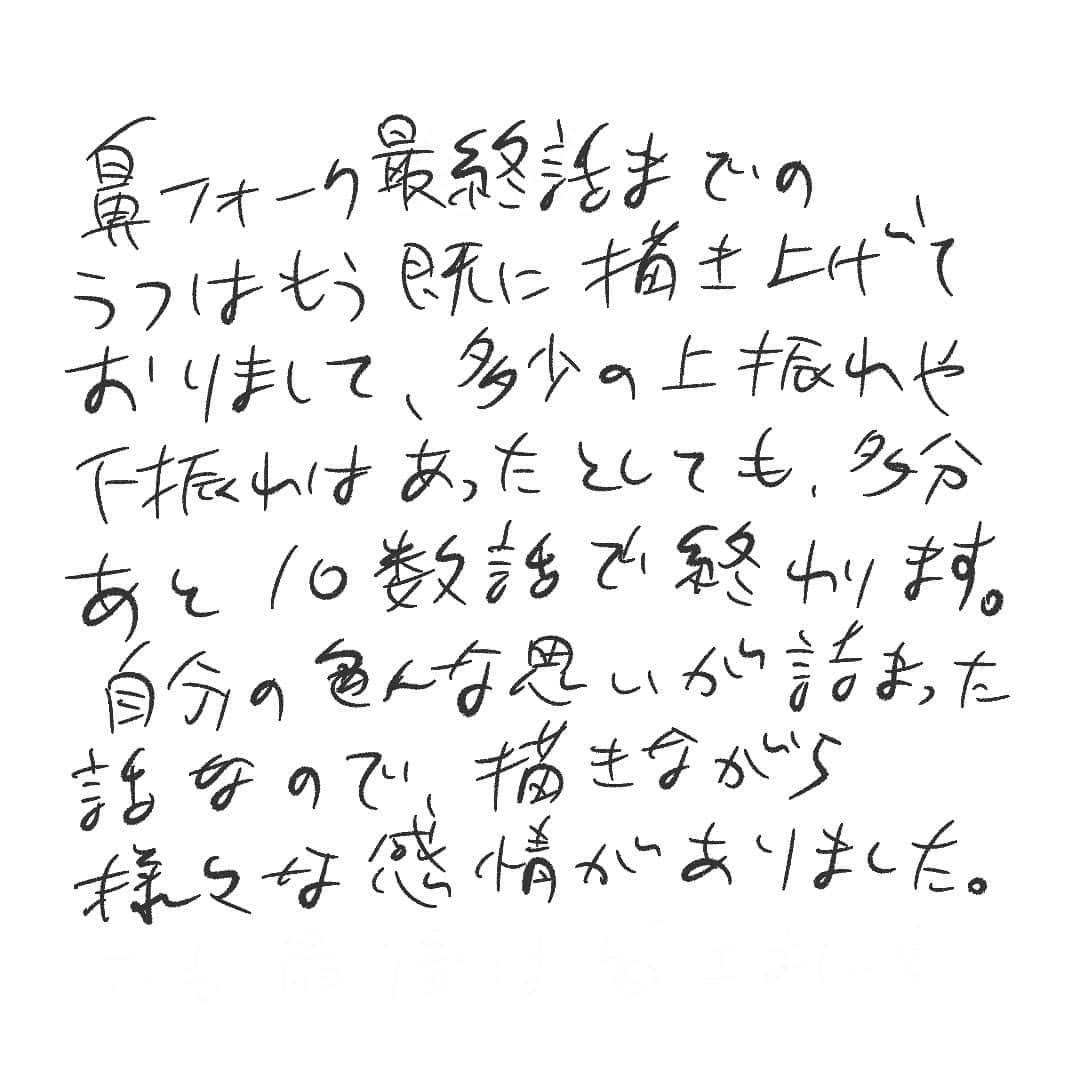 鼻フォーク最終話までの
うつはもう既に描き上げて
おりまして、多少の上振れや
下振れはあったとしても、多分
あと10数話で終わります。
自分の色んな思いが詰まった
話なので、描きながら
様々な感情がありました。